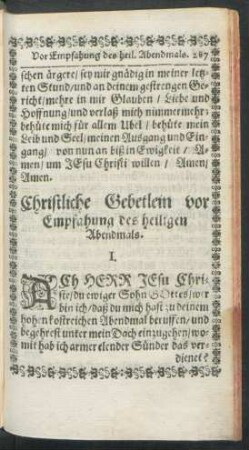 Vor Empfahung des heil. Abendmals. 287
schen ärgere/ sey mir gnädig in meiner letz-
ten Stund/ und an deinem gestrengen Ge-
richt/ mehre in mir Glauben/ Liebe und
Hoffnung/ und verlaß mich nimmermehr/
behüte mich für allem Ubel/ behüte mein
Leib und Seel/ meinen Außgang und Ein-
gang/ von nun an biß in Ewigkeit/ A-
men/ um JEsu Christi willen/ Amen/
Amen.
Christliche Gebetlein vor
Empfahung des heiligen
Abendmals.
I.
ACh HERR JEsu Chri-
ste/ du ewiger Sohn GOttes/ wer
bin ich/ daß du mich hast zu deinem
hohen kostreichen Abendmal beruffen/ und
begehrest unter mein Dach einzugehen/ wo-
mit hab ich armer elender Sünder das ver-
dienet?